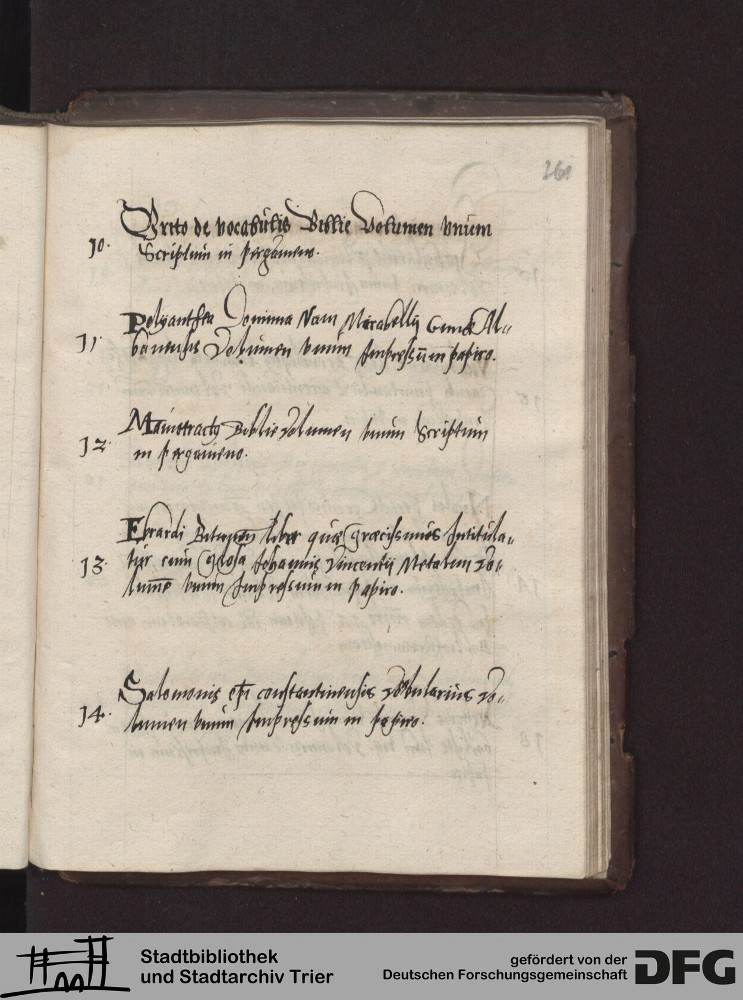 261
Brito de vocabulis Biblie Volumen vnum
10. Scriptum in pergameno.
Polyanthea Domini Nani Mirabellij
11. Volumen vnum Impressum in papiro.
12. Mamotractus Biblie Volumen vnum Scriptum
in pergameno.
Ebrardi liber qui Græcismus Intitula-
13. tur cum Glosa Iohannis Vincentij Metulini Vo-
lumen vnum Impressum in papiro.
Salomonis epi constantinensis Vo-
14. lumen vnum Impressum in papiro.
Stadtbibliothek
und Stadtarchiv Trier
gefördert von der
Deutschen Forschungsgemeinschaft
DFG